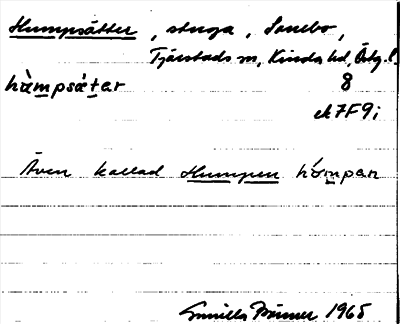 Humpsätter, stuga, Sonebo,
Tjärstads sn, Kinda hd, Östg. l.
hàmpsǽtar 8
ek 7F9i
Även kallad Humpen hómpan
Gunilla 1965